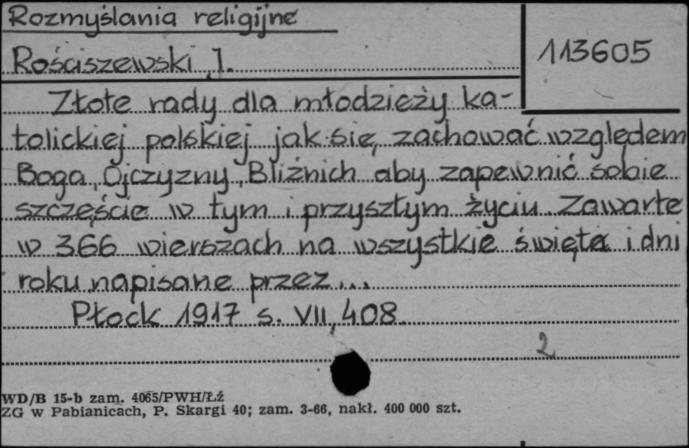 Rozmyślania religijne
113605
Rościszewski J.
Złote rady dla młodzieży ka-
tolickiej polskiej jak się zachować względem
Boga, Ojczyzny, Bliźnich aby zapewnić sobie
szczęście w tym i przyszłym życiu Zawarte
w 366 wierszach na wszystkie święta i dni
roku napisane przez...
Płock 1917 s. VII, 408
2
WD/B 15-b zam. 4065/PWH/Łź
ZG w Pabianicach, P. Skargi 40; zam. 3-66, nakł. 400 000 szt.